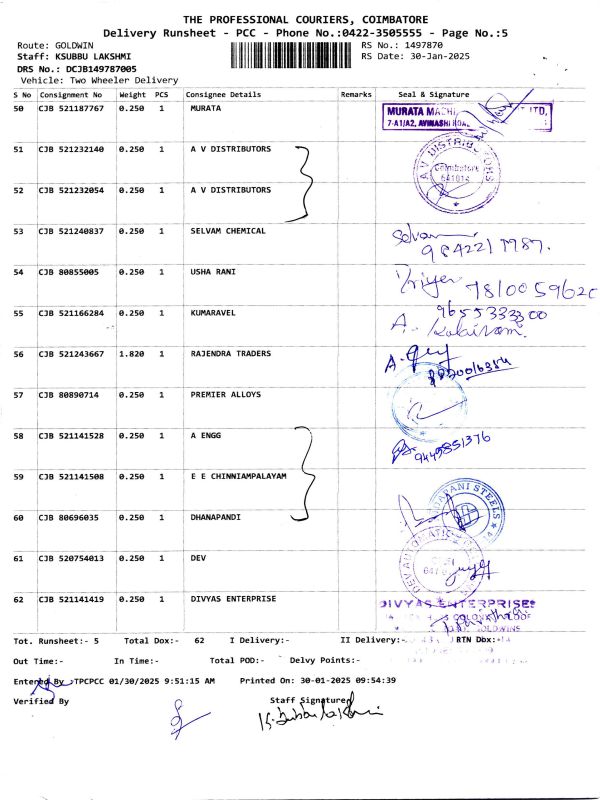 THE PROFESSIONAL COURIERS, COIMBATORE
Delivery Runsheet - PCC - Phone No.:0422-3505555 - Page No.:5
Route: GOLDWIN RS No.: 1497870
Staff: KSUBBU LAKSHMI RS Date: 30-Jan-2025
DRS No.: DCJB149787005
Vehicle: Two Wheeler Delivery
S No Consignment No Weight PCS Consignee Details Remarks Seal & Signature
50 CJB 521187767 0.250 1 MURATA
MURATA LTD,
7-A1/A2, AVINASHI ROAD
51 CJB 521232140 0.250 1 A V DISTRIBUTORS
A V DISTRIBUTORS
Coimbatore
641014
52 CJB 521232054 0.250 1 A V DISTRIBUTORS
53 CJB 521240837 0.250 1 SELVAM CHEMICAL
Selvam
54 CJB 80855005 0.250 1 USHA RANI
7810059620
55 CJB 521166284 0.250 1 KUMARAVEL
9655333300
A.
56 CJB 521243667 1.820 1 RAJENDRA TRADERS
A.
57 CJB 80890714 0.250 1 PREMIER ALLOYS
58 CJB 521141528 0.250 1 A ENGG
9445851376
59 CJB 521141508 0.250 1 E E CHINNIAMPALAYAM
60 CJB 80696035 0.250 1 DHANAPANDI
STEELS
61 CJB 520754013 0.250 1 DEV
DEV AUTOMATION
62 CJB 521141419 0.250 1 DIVYAS ENTERPRISE
DIVYAS ENTERPRISES
GOLDWINS
Tot. Runsheet:- 5 Total Dox:- 62 I Delivery:- II Delivery:- RTN Dox:-
Out Time:- In Time:- Total POD:- Delvy Points:-
Entered By :TPCPCC 01/30/2025 9:51:15 AM Printed On: 30-01-2025 09:54:39
Verified By Staff Signature
K. Subbulakshmi